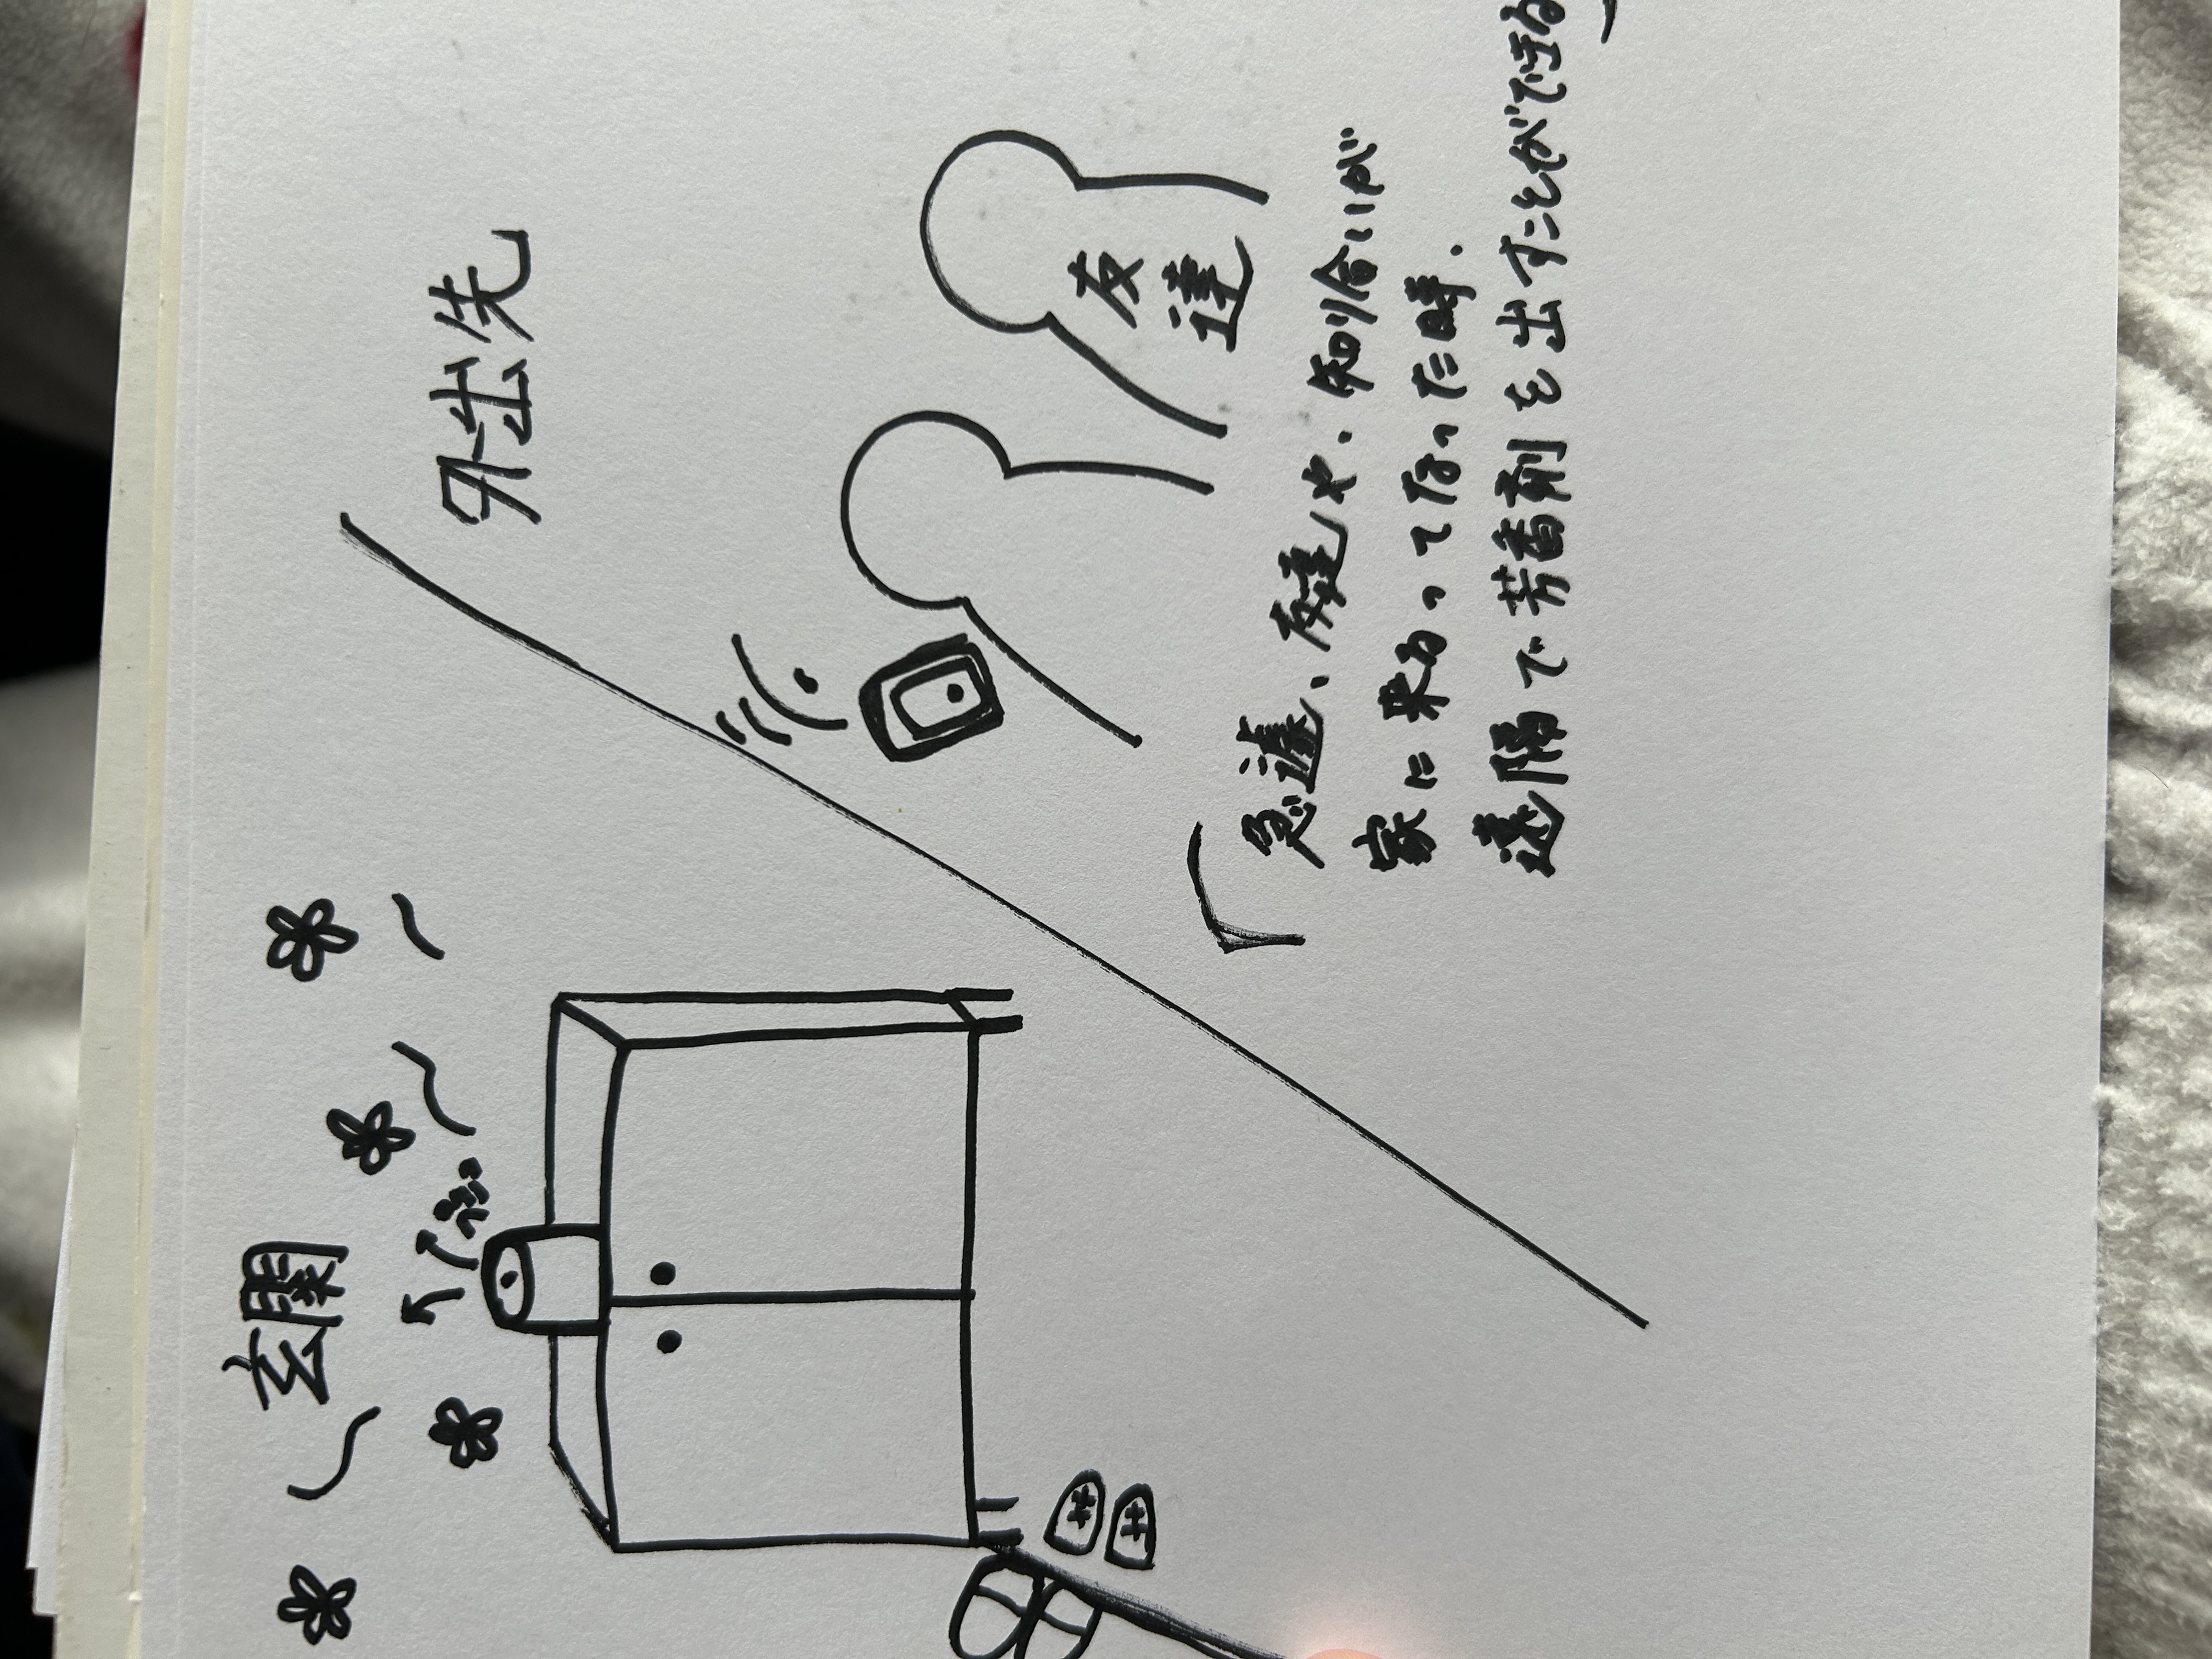 玄関
外出先
友
達
「急遽、友達や、知り合いが
家に来るってなった時、
遠隔で芳香剤を出すことができる